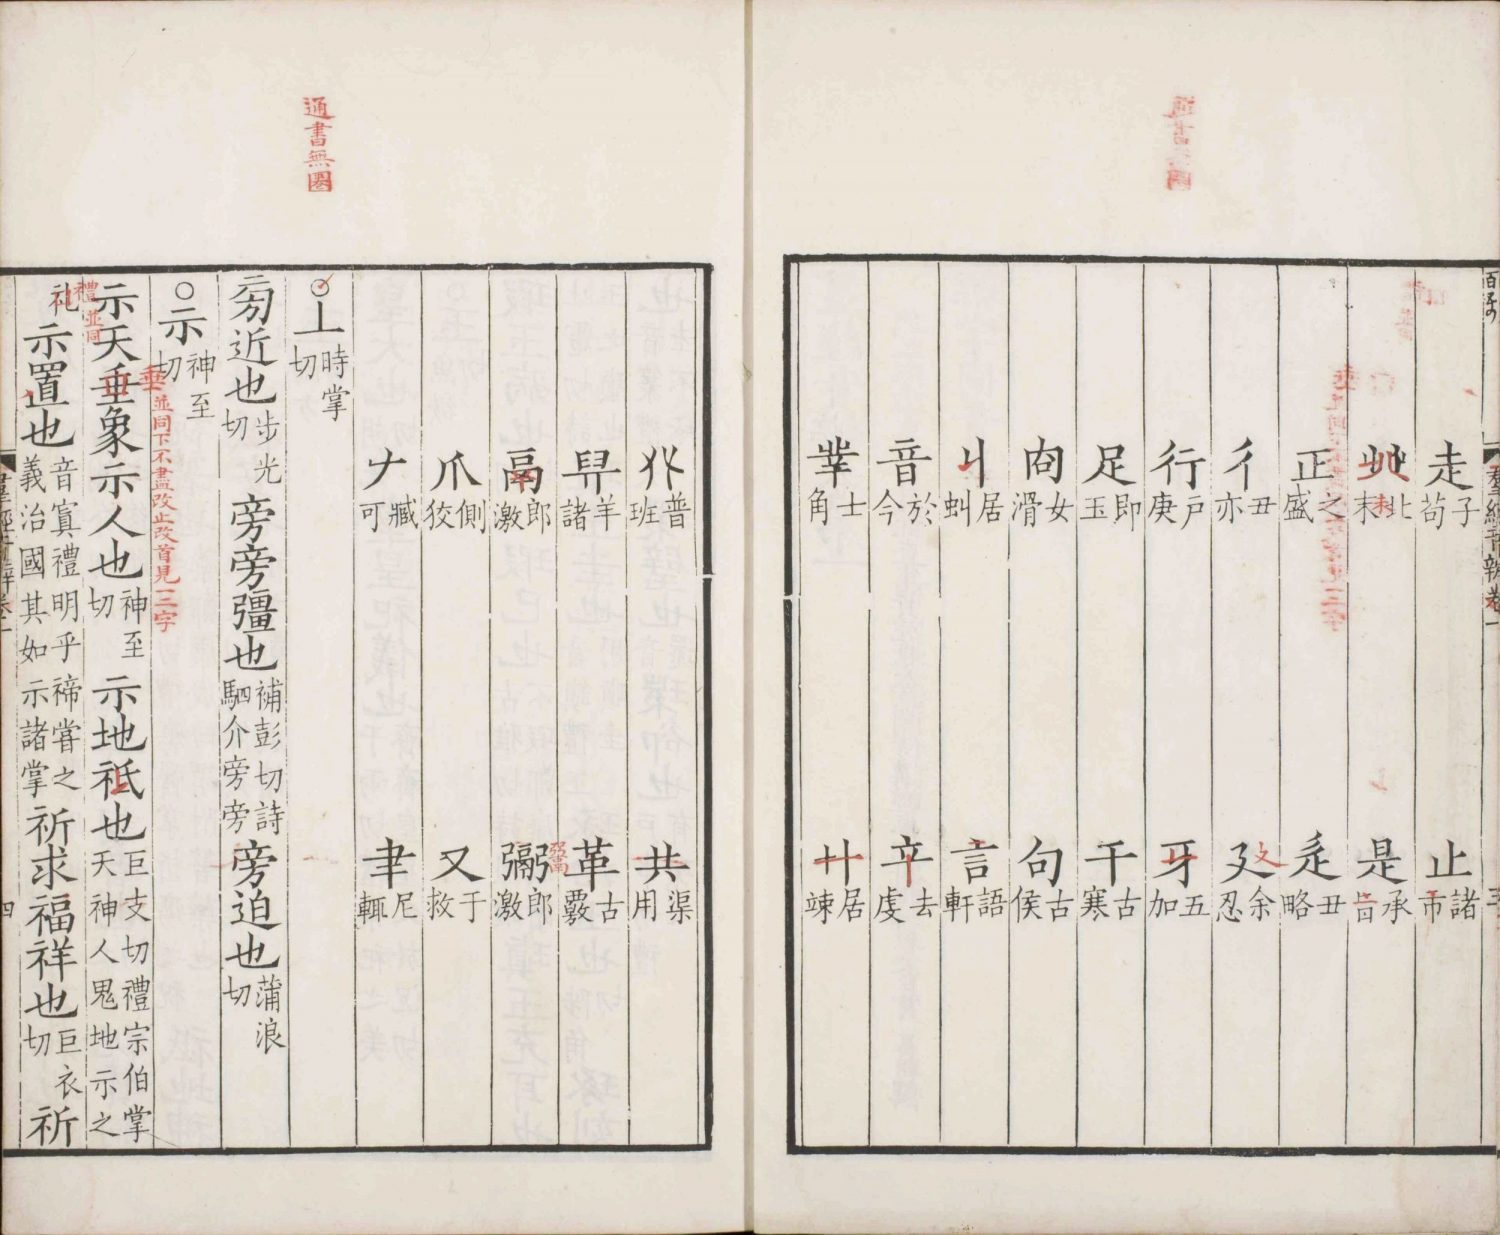 走子苟 止諸市
癶北末 是承旨
正之盛 辵丑略
彳丑亦 廴余忍
行戶庚 牙五加
足即玉 干古寒
㕯女滑 句古侯
丩居虯 言語軒
音於今 䇂去虔
丵士角 廾居竦
羣經音辨卷一
通書無圈
𠬜普班 共渠用
舁羊諸 革古覈
鬲郎激 䰜郎激
爪側狡 又于救
𠂇臧可 聿尼輒
○丄時掌切
旁近也步光切旁旁彊也補彭切詩駟介旁旁旁迫也蒲浪切
○示神至切
垂並同下不盡改止改首見一二字
示天垂象示人也神至切示地祇也巨支切禮宗伯掌天神人鬼地示之
禮並同
礼示置也音寘禮明乎禘嘗之義治國其如示諸掌祈求福祥也巨衣切祈
羣經音辨卷一
四